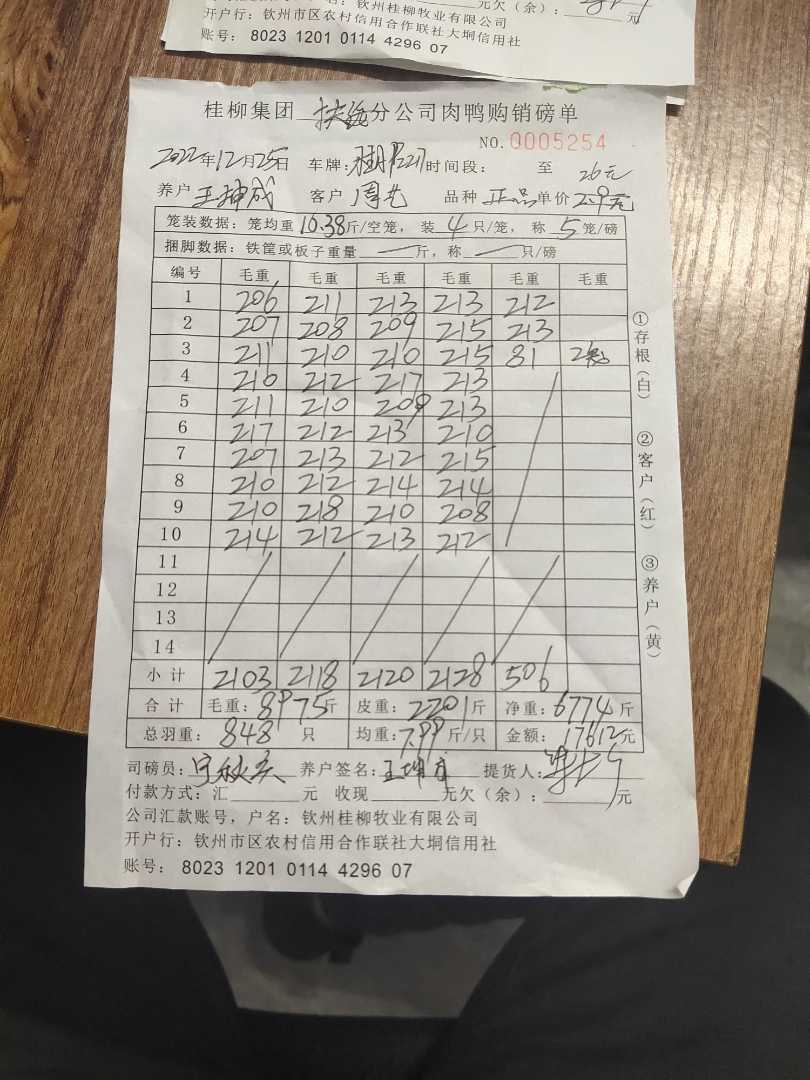 元欠（余）：　　元
名：钦州桂柳牧业有限公司
开户行：钦州市区农村信用合作联社大垌信用社
账号：8023 1201 0114 4296 07
桂柳集团 扶绥 分公司肉鸭购销磅单
NO.0005254
2022年12月25日 车牌： 时间段： 至
26元
养户 王坤成 客户 品种 正品 单价 2.9元
笼装数据：笼均重10.38斤/空笼，装 4 只/笼，称 5 笼/磅
捆脚数据：铁筐或板子重量 — 斤，称 — 只/磅
编号 毛重 毛重 毛重 毛重 毛重 毛重
1 206 211 213 213 212
2 207 208 209 215 213
3 211 210 210 215 81
4 210 212 217 213
5 211 210 209 213
6 217 212 213 210
7 207 213 212 215
8 210 212 214 214
9 210 218 210 208
10 214 212 213 212
11
12
13
14
小计 2103 2118 2120 2128 506
合计 毛重：8975斤 皮重：2201斤 净重：6774斤
总羽重：848 只 均重：7.99斤/只 金额：17612元
司磅员： 养户签名：王坤成 提货人：
付款方式：汇　　元 收现　　元欠（余）：　　元
公司汇款账号，户名：钦州桂柳牧业有限公司
开户行：钦州市区农村信用合作联社大垌信用社
账号：8023 1201 0114 4296 07
①存根（白） ②客户（红） ③养户（黄）